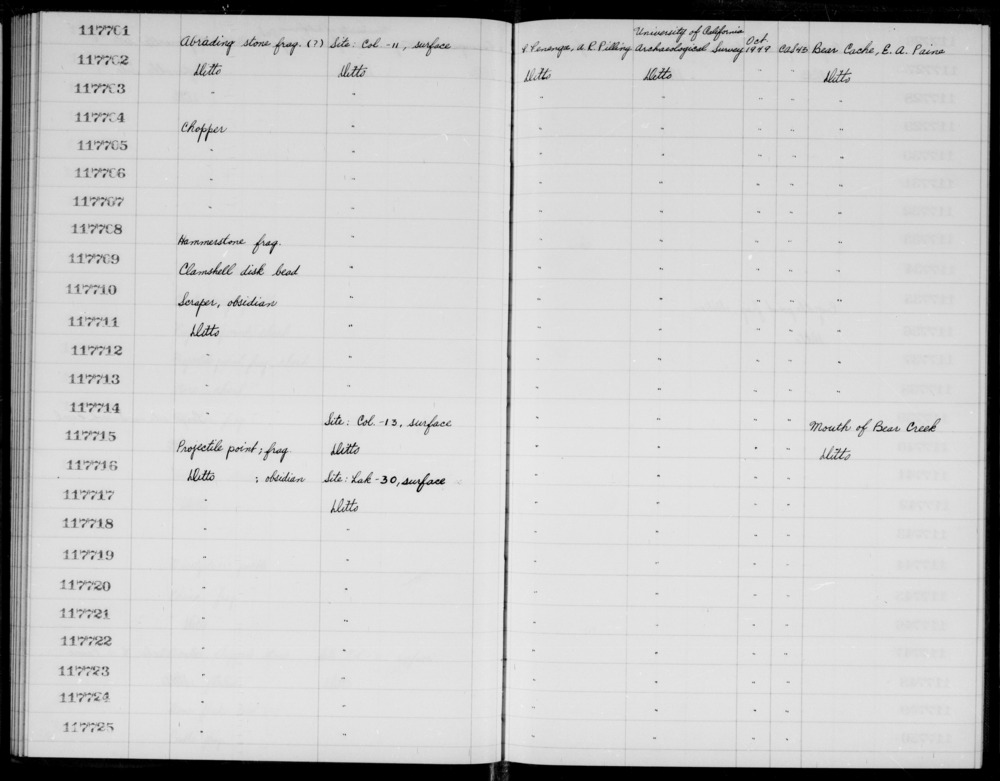 117701 Abrading stone frag. (?) Site: Col.-11, surface A.R. Pilling University of California Archaeological Survey Oct. 1949 Bear Cache, E. A. Paine
117702 Ditto Ditto Ditto Ditto " " Ditto
117703 " " " " " " "
117704 Chopper " " " " " "
117705 " " " " " " "
117706 " " " " " " "
117707 " " " " " " "
117708 Hammerstone frag. " " " " " "
117709 Clamshell disk bead " " " " " "
117710 Scraper, obsidian " " " " " "
117711 Ditto " " " " " "
117712 " " " " " " "
117713 " " " " " " "
117714 " Site: Col.-13, surface " " " " Mouth of Bear Creek
117715 Projectile point; frag Ditto " " " " Ditto
117716 Ditto ; obsidian Site: Lak-30, surface " " " "
117717 " Ditto " " " "
117718 " " " " " "
117719 " " " " " "
117720 " " " " " "
117721 " " " " " "
117722 " " " " " "
117723 " " " " " "
117724 " " " " " "
117725 " " " " " "